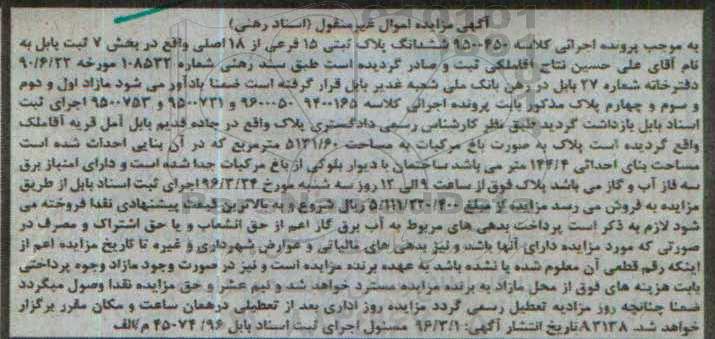 آگهی مزایده اموال غیرمنقول (اسناد رهنی)
به موجب پرونده اجرائی کلاسه ۹۵۰۰۴۵۰ ششدانگ پلاک ثبتی ۱۵ فرعی از ۱۸ اصلی واقع در بخش ۷ ثبت بابل به
نام آقای علی حسین نتاج آقاملکی ثبت و صادر گردیده است طبق سند رهنی شماره ۱۰۸۵۳۲ مورخه ۹۰/۶/۲۲
دفترخانه شماره ۲۷ بابل در رهن بانک ملی شعبه غدیر بابل قرار گرفته است ضمنا یادآور می شود مازاد اول و دوم
و سوم و چهارم پلاک مذکور بابت پرونده اجرائی کلاسه ۹۴۰۰۱۶۵ ۹۶۰۰۰۵۰ و ۹۵۰۰۷۳۱ و ۹۵۰۰۷۵۳ اجرای ثبت
اسناد بابل بازداشت گردید طبق نظر کارشناس رسمی دادگستری پلاک واقع در جاده قدیم بابل آمل قریه آقاملک
واقع گردیده است پلاک به صورت باغ مرکبات به مساحت ۵۱۳۱/۶۰ مترمربع که در آن بنایی احداث شده است
مساحت بنای احداثی ۱۴۴/۴ متر می باشد ساختمان با دیوار بلوکی از باغ مرکبات جدا شده است و دارای امتیاز برق
سه فاز آب و گاز می باشد پلاک فوق از ساعت ۹ الی ۱۲ روز سه شنبه مورخ ۹۶/۳/۲۳ اجرای ثبت اسناد بابل از طریق
مزایده به فروش می رسد مزایده از مبلغ ۵/۱۱۱/۳۲۰/۴۰۰ ریال شروع و به بالاترین قیمت پیشنهادی نقدا فروخته می
شود لازم به ذکر است پرداخت بدهی های مربوط به آب برق گاز اعم از حق انشعاب و یا حق اشتراک و مصرف در
صورتی که مورد مزایده دارای آنها باشد و نیز بدهی های مالیاتی و عوارض شهرداری و غیره تا تاریخ مزایده اعم از
اینکه رقم قطعی آن معلوم شده یا نشده باشد به عهده برنده مزایده است و نیز در صورت وجود مازاد وجوه پرداختی
بابت هزینه های فوق از محل مازاد به برنده مزایده مسترد خواهد شد و نیم عشر و حق مزایده نقدا وصول میگردد
ضمنا چنانچه روز مزایده تعطیل رسمی گردد مزایده روز اداری بعد از تعطیلی درهمان ساعت و مکان مقرر برگزار
خواهد شد. ۸۳۱۳۸ تاریخ انتشار آگهی: ۹۶/۳/۱ مسئول اجرای ثبت اسناد بابل ۹۶/ ۷۴-۴۵ م/الف